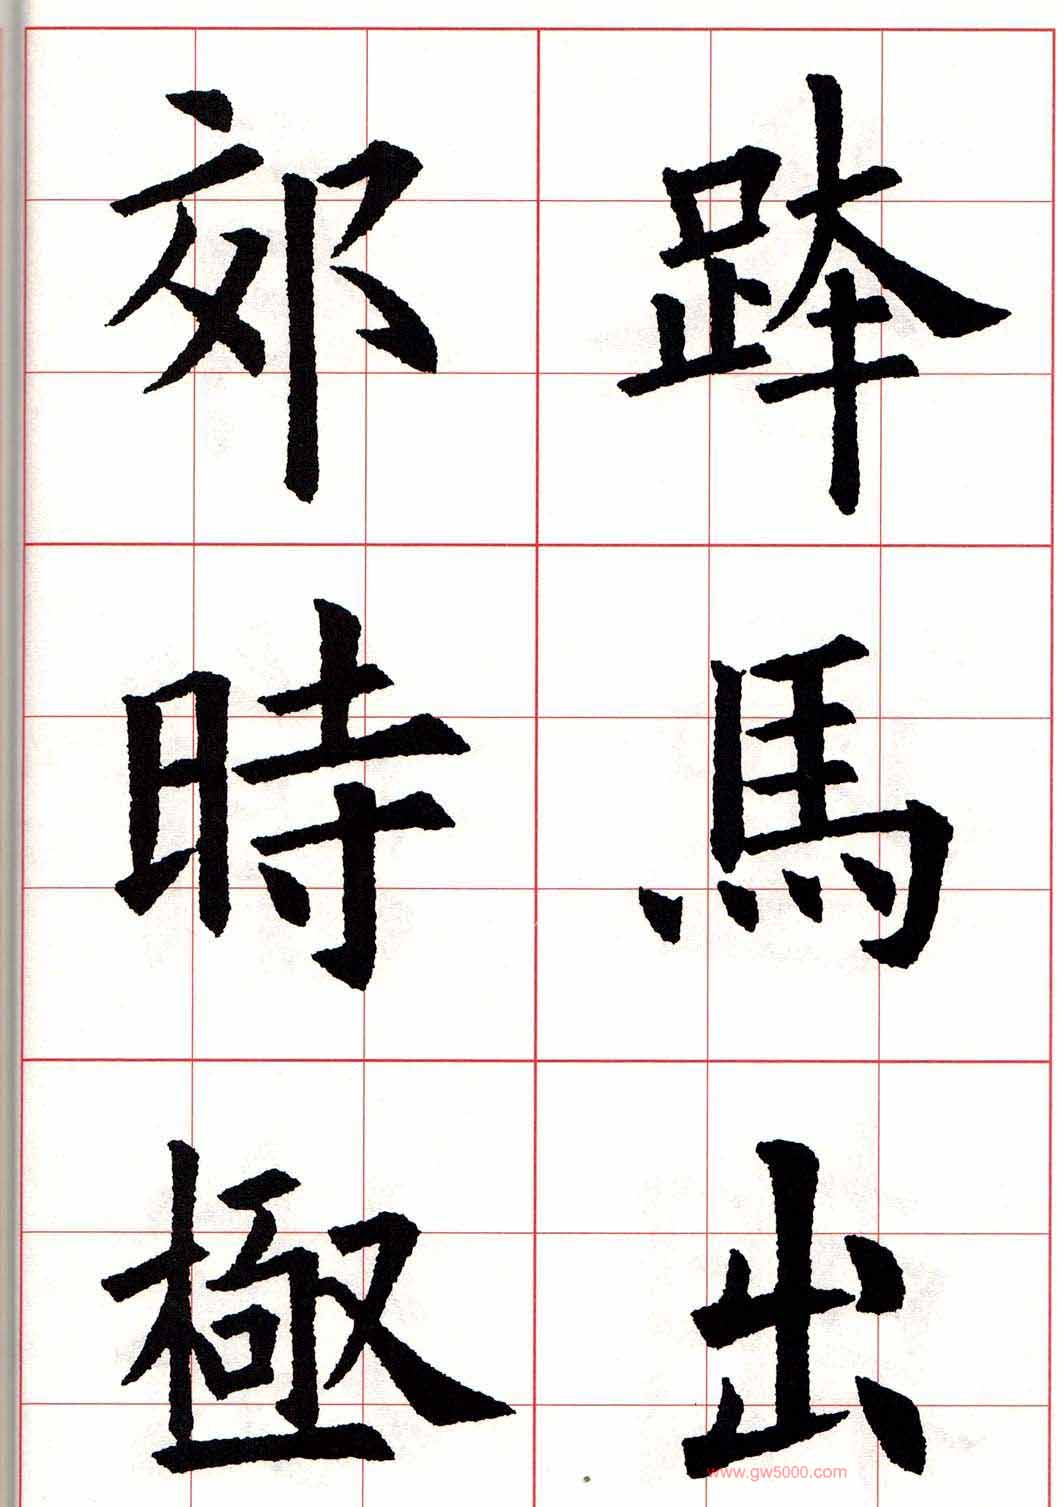 跨馬出
郊時極
www.gw5000.com